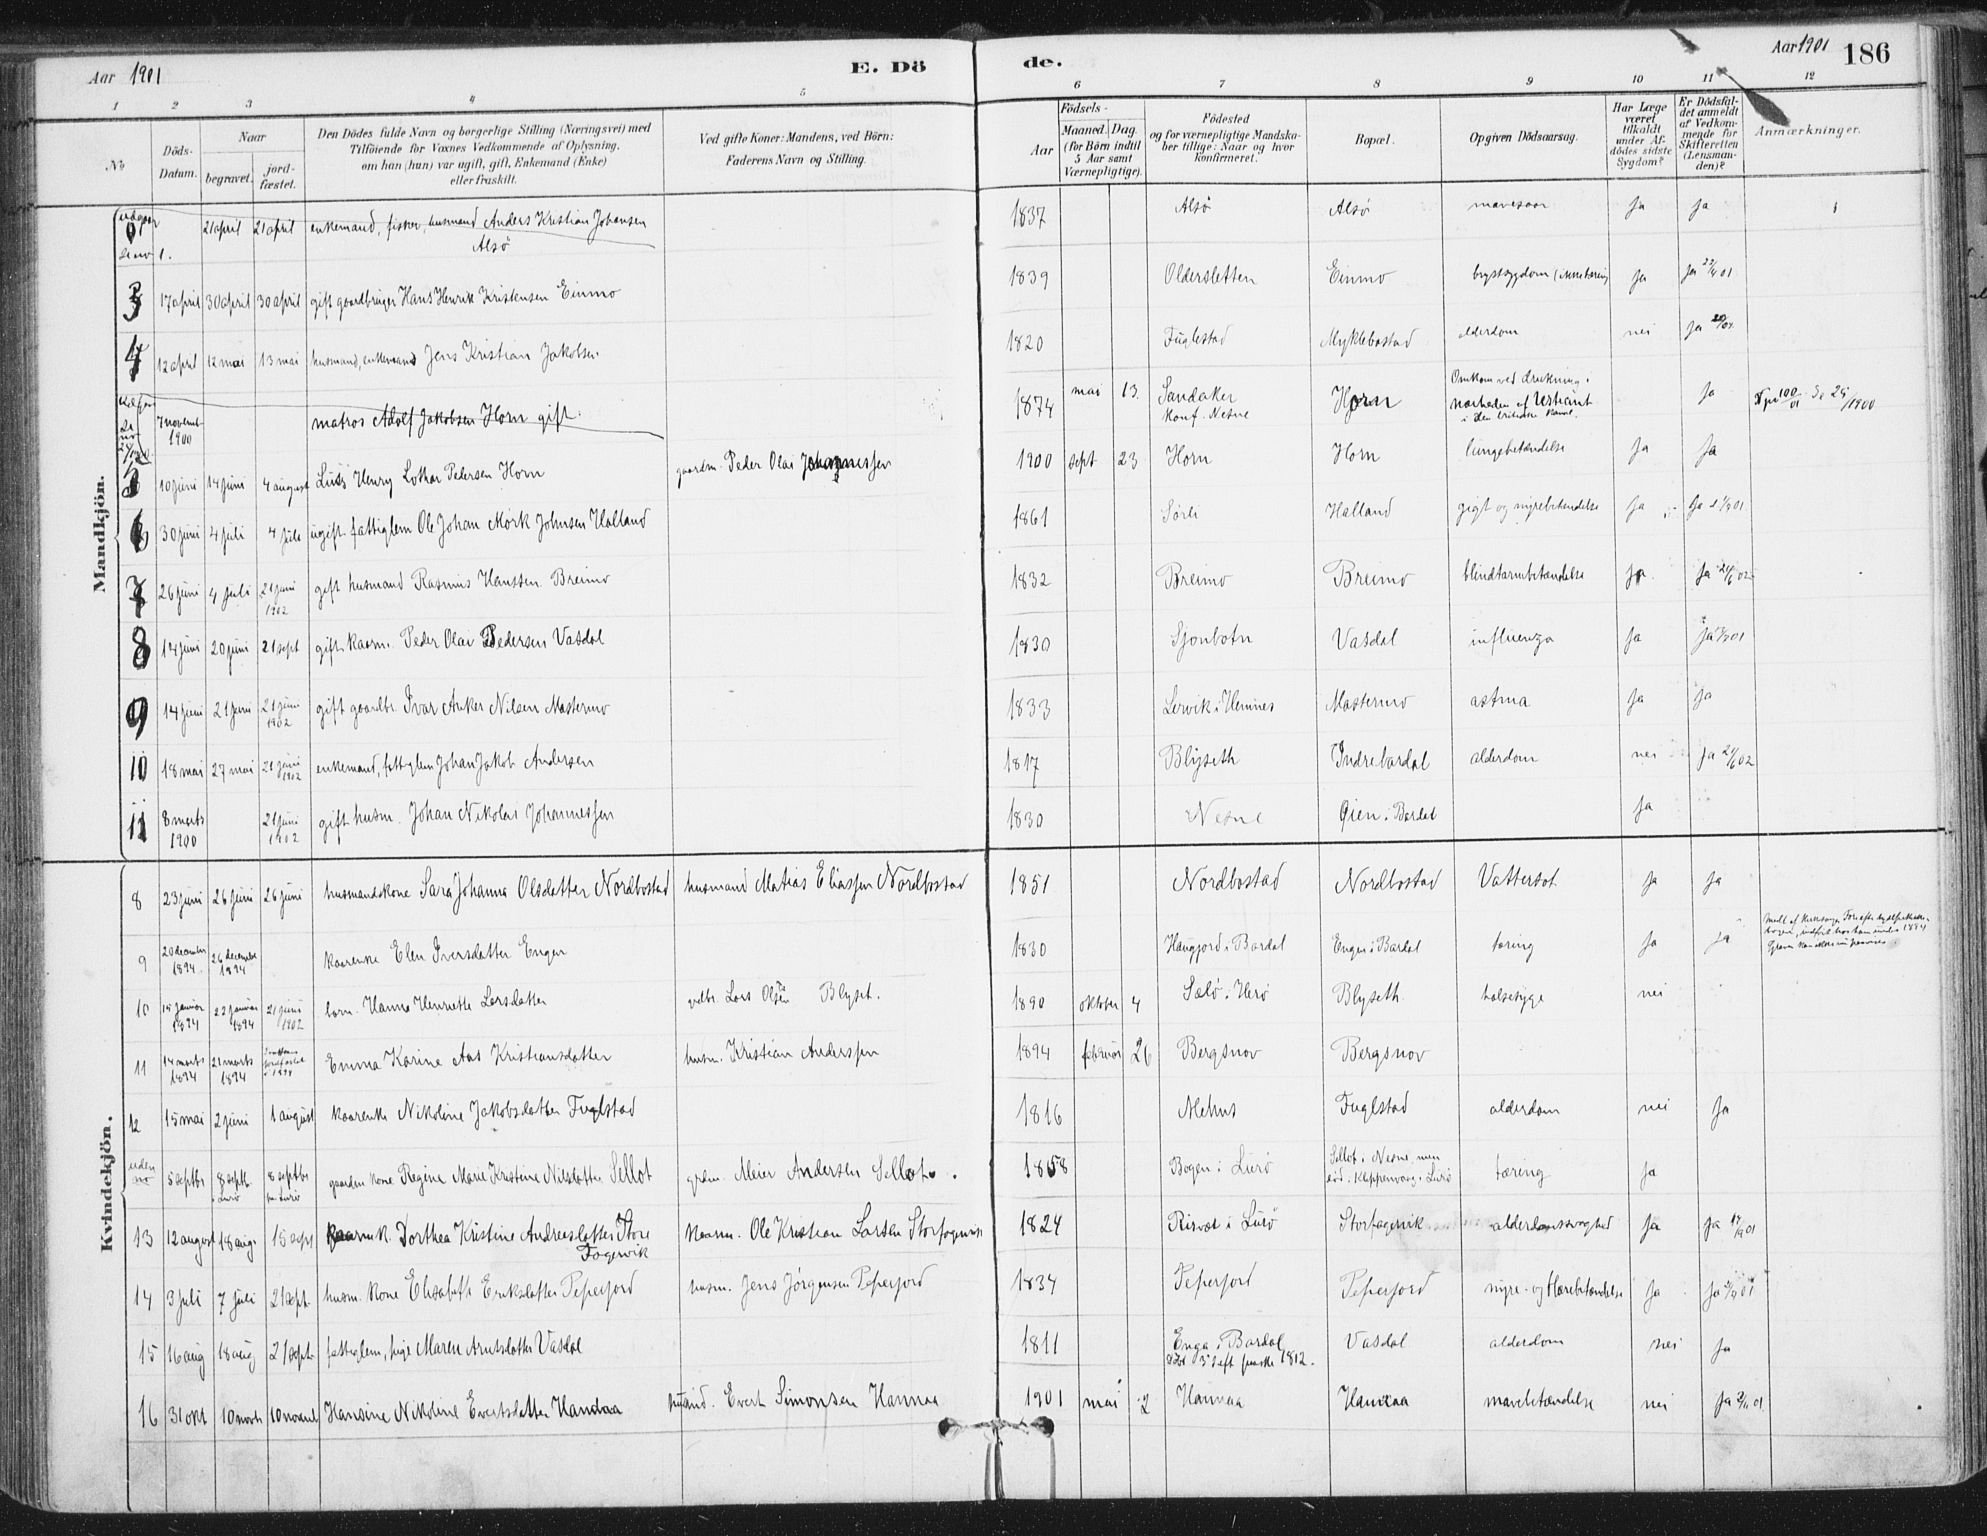 Aar 1901 E. Dö de. Aar 1901 186
1 2 3 4 5 6 7 8 9 10 11 12
No
Döds-Datum.
Naar
begravet.
jord-fæstet.
Den Dödes fulde Navn og borgerlige Stilling (Næringsvei) med
Tilföiende for Voxnes Vedkommende af Oplysning,
om han (hun) var ugift, gift, Enkemand (Enke)
eller fraskilt.
Ved gifte Koner: Mandens, ved Börn:
Faderens Navn og Stilling.
Födsels-
Aar
Maaned. Dag.
(for Börn indtil
5 Aar samt
Værnepligtige).
Födested
og for værnepligtige Mandska-
ber tillige: Naar og hvor
konfirmeret.
Bopæl.
Opgiven Dödsaarsag.
Har Læge
været
tilkaldt
under Af-
dödes sidste
Sygdom?
Er Dödsfal-
det anmeldt
af Vedkom-
mende for
Skifteretten
(Lensman-
den)?
Anmærkninger.
Mandkjön.
21 april 21 april enkemand, fisker, husmand Anders Kristian Johansen Alsö 1837 Alsö Alsö mavesaar ja ja
3 17 april 30 april 30 april gift gaardbruger Hans Henrik Kristensen Einmo 1839 Oldersletten Einmo brystsygdom ja ja
4 12 april 12 mai 13 mai husmand, enkemand Jens Kristian Jakobsen 1820 Fuglestad Myklebostad alderdom nei ja
7 novemb 1900 matros Adolf Jakobsen Horn gift. 1874 mai 13 Sandaker konf. Nesne Horn Omkom ved drukning i nærheden af i den britiske kanal. ja
10 juni 14 juni 4 august Henry Lothar Pedersen Horn gaardm. Peder Olai Johannessen 1900 sept 23 Horn Horn lungebetændelse ja ja
6 30 juni 4 juli 4 ugift fattiglem Ole Johan Mörk Johnsen Halland 1861 Halland gigt og nyrebetændelse ja ja
7 26 juni 4 juli 21 juni 1902 gift husmand Rasmus Hanssen Breimo 1832 Breimo Breimo blindtarmbetændelse ja ja 21/6 02
8 14 juni 20 juni 21 sept gift kaarm. Peder Olai Pedersen Vasdal 1830 Sjonbotn Vasdal influenza ja ja
9 14 juni 21 juni 21 juni 1902 gift gaardbr. Ivar Anker Nilsen Mastermo 1833 Lervik i Hemnes Mastermo astma ja ja
10 18 mai 27 mai 21 juni 1902 enkemand, fattiglem Johan Jakob Andersen 1817 Blyseth Indrebardal alderdom nei ja 21/6 02
11 8 marts 1900 21 juni 1902 gift husm. Johan Nikolai Johannessen 1830 Nesne Öien i Bardal ja
Kvindekjön.
8 23 juni 26 juni 26 juni husmandskone Sara Johanna Olsdatter Nordbostad husmand Matias Eliassen Nordbostad 1851 Nordbostad Nordbostad Vattersot ja ja
9 20 december 1894 26 december 1894 kaarenke Elen Iversdatter Engen 1830 Haugjord i Bardal Engen i Bardal tæring ja ja
10 15 januar 1894 22 januar 1894 21 juni 1902 barn Hanna Henriette Larsdatter Lars Olsen Blyset. 1890 oktober 4 Salö i Herö Blyseth halssyge nei
11 14 marts 1894 21 marts 1894 Emma Karine Aas Kristiansdatter husm. Kristian Anderssen 1894 februar 26 Bergsnov Bergsnov
12 15 mai 2 juni 1 august kaarenke Nikoline Jakobsdatter Fuglstad 1816 Alehus Fuglstad alderdom nei ja
uden no 5 septbr 8 septb i Lurö 8 septbr Lurö gaardm kone Regine Marie Kristine Nilsdatter Sellot grdm. Meier Andersen Sellot. 1858 Bogen i Lurö Sellot i Nesne, men död i Kleppenvaag i Lurö tæring ja
13 12 august 18 aug. 15 sept kaarmk. Dorthea Kristine Andreasdatter Store Fagervik kaarm. Ole Kristian Larsen Storfagervik 1824 Risvær i Lurö Storfagervik alderdomssvaghed ja ja
14 3 juli 7 juli 21 sept. husm. kone Elisabeth Eriksdatter Peperfjord husm. Jens Jörgensen Peperfjord 1834 Peperfjord Peperfjord nyre- og blærebetændelse ja ja
15 16 aug 18 aug 21 sept. fattiglem, pige Maren Arntsdatter Vasdal 1811 Enga i Bardal 1812. Vasdal alderdom nei ja
16 31 okt 10 novb 10 novemb Hansine Nikoline Evertsdatter Handaa Evert Simonsen Hannaa 1901 mai 2 Hannaa Hannaa mavebetændelse nei ja